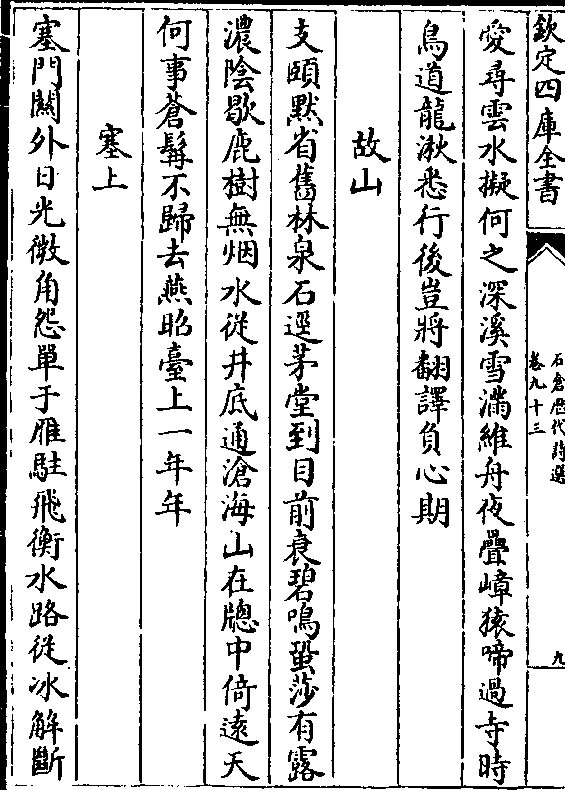 欽定四庫全書
石倉歴代詩選
卷九十三
九
愛尋雲水擬何之深溪雪滿維舟夜疊嶂猿啼過寺時
鳥道龍湫悉行後豈將翻譯負心期
故山
支頤黙省舊林泉石逕茅堂到目前衰碧鳴蛩莎有露
濃陰歇鹿樹無烟水從井底通滄海山在牕中倚遠天
何事蒼髯不歸去燕昭臺上一年年
塞上
塞門關外日光微角怨單于雁駐飛衡水路從冰解斷